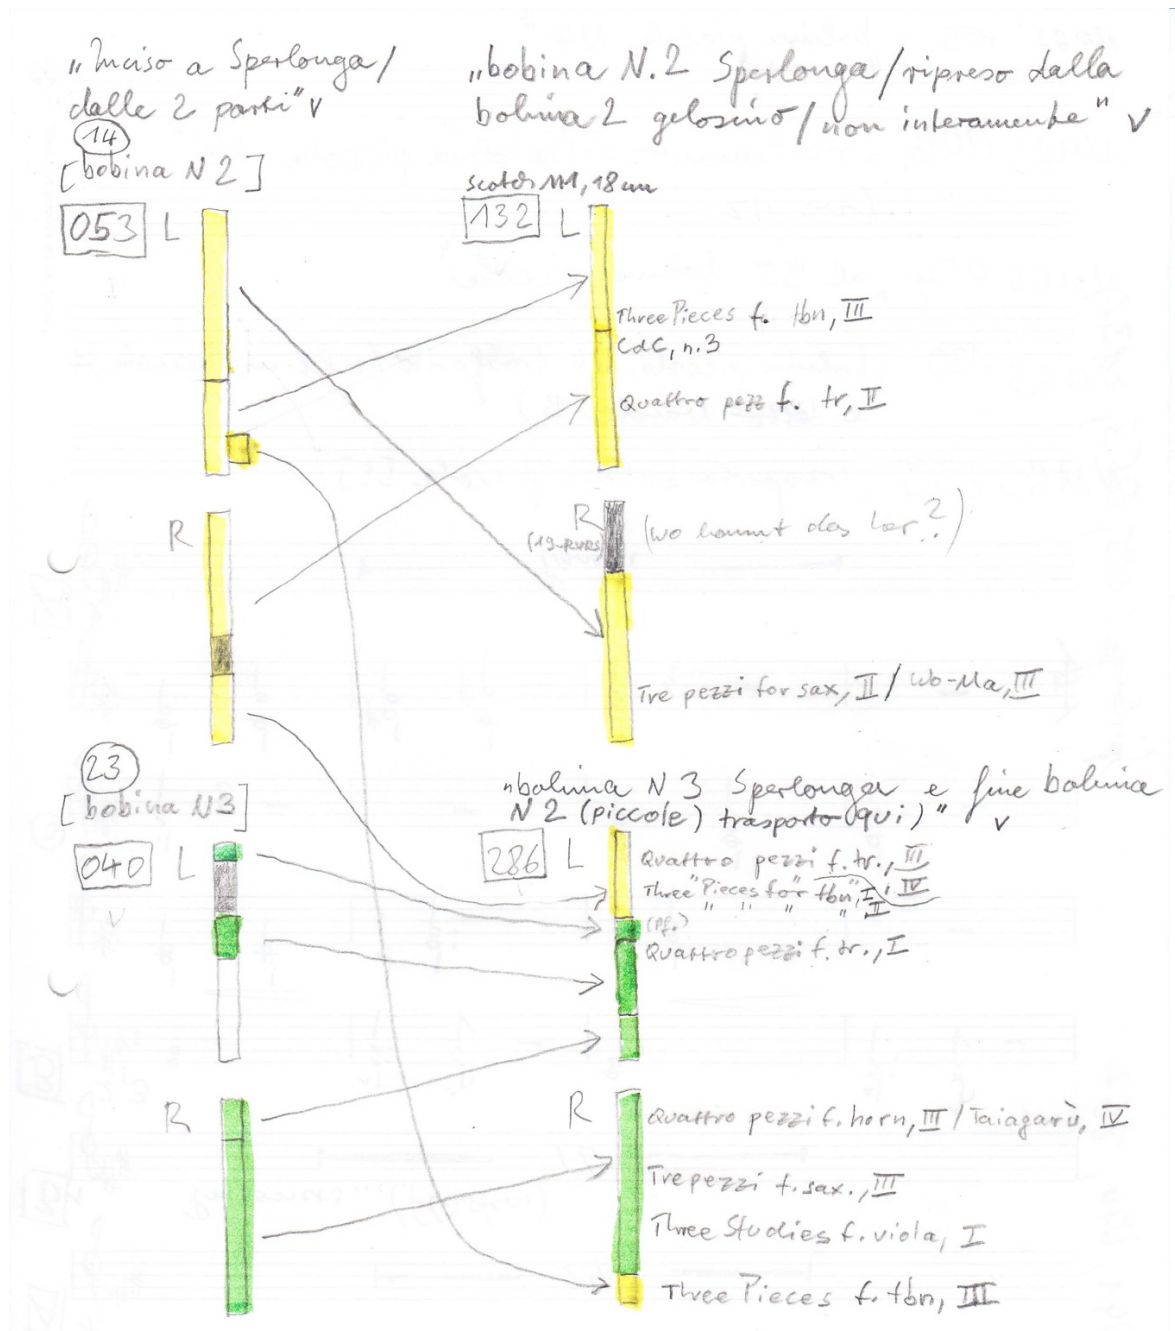 „Inciso a Sperlonga/
dalle 2 parti" v
14
[bobina N 2]
053 L
R
„bobina N.2 Sperlonga/ripreso dalla
bobina 2 gelosino/non interamente" v
scotch 111, 18 cm
132 L
Three Pieces f. tbn, III
CdC, n.3
Quattro pezzi f. tr, II
R (wo kommt das her?)
Tre pezzi for sax, II / Wo-Ma, III
23
[bobina N3]
040 L
v
R
„bobina N 3 Sperlonga e fine bobina
N 2 (piccole) trasporto (qui)" v
286 L
Quattro pezzi f. tr., III
Three "Pieces for tbn", I, IV
" " " " II
(pf.)
Quattro pezzi f. tr., I
R
Quattro pezzi f. horn, III / Taiagarù, IV
Tre pezzi f. sax., III
Three Studies f. viola, I
Three Pieces f. tbn, III